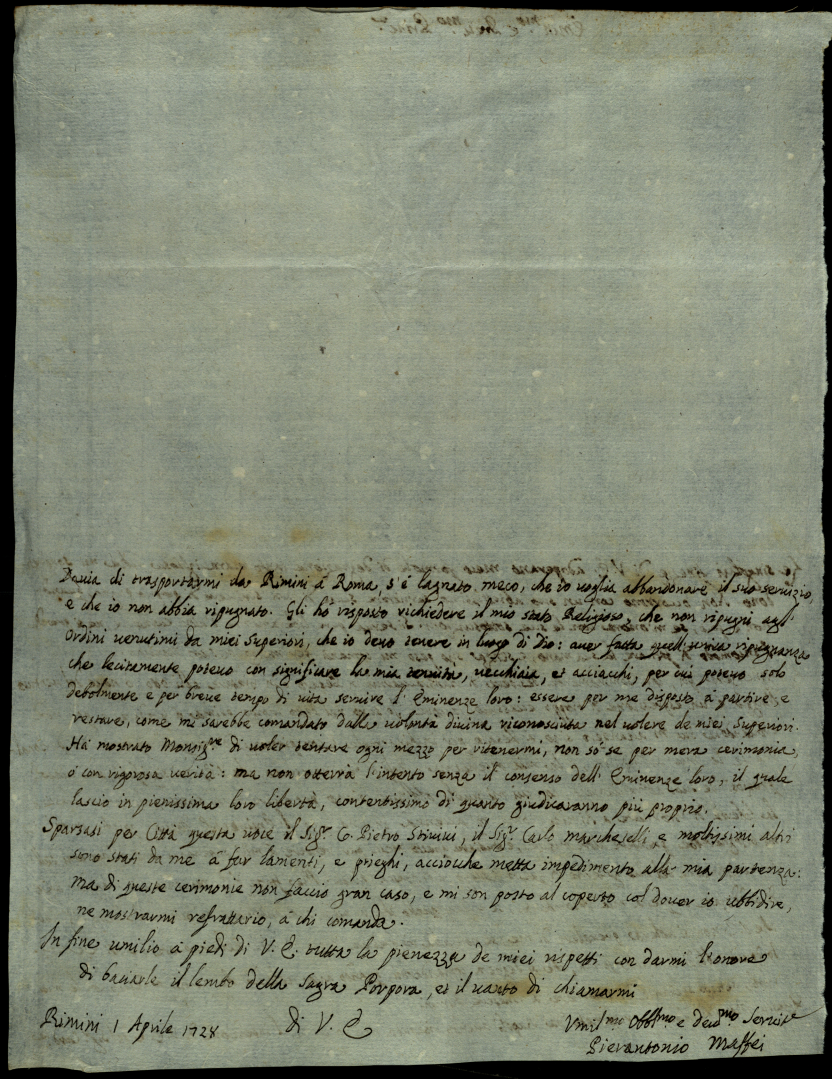 Davia di trasportarmi da Rimini á Roma, s'é lagnato meco, che io voglia abbandonare il suo servizio,
e che io non abbia ripugnato. Gli hó risposto richiedere il mio stato Religioso, che non ripugni agl'
ordini venutimi da miei Superiori, che io devo tenere in luogo di Dio: aver fatta quell'unica ripugnanza
che lecitamente potevo con significare la mia tenuità, vecchiaia, et acciacchi, per cui potevo solo
debolmente e per breve tempo di vita servire l'Eminenze loro: essere per me disposto á partire, e
restare, come mi sarebbe comandato dalla volontà divina riconosciuta nel volere de miei Superiori.
Há mostrato Monsig.re di voler tentare ogni mezzo per ritenermi, non só se per mera cerimonia,
ó con rigorosa verità: ma non otterrà l'intento senza il consenso dell'Eminenze loro, il quale
lascio in pienissima loro libertà, contentissimo di quanto giudicaranno più proprio.
Sparsasi per Città questa voce il Sig.r Co. Pietro Strivivi, il Sig.r Carlo Marcheselli, e moltissimi altri
sono stati da me á far lamenti, e prieghi, acciocche metta impedimento alla mia partenza:
ma di queste cerimonie non faccio gran caso, e mi son posto al coperto col dover io ubbidire,
ne mostrarmi refrattario, á chi comanda.
In fine umilio á piedi di V. E. tutta la pienezza de miei rispetti con darmi l'onore
di baciarle il lembo della Sagra Porpora, et il vanto di chiamarmi
Rimini 1 Aprile 1728 di V. E.
Vmil.mo Obbl.mo e dev.mo Servit.e
Pierantonio Maffei